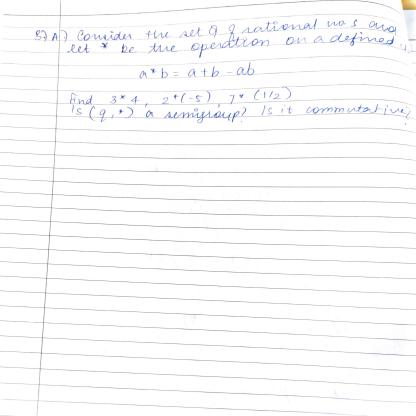 3) A) Consider the set Q of rational no s and
let * be the operation on a defined
a * b = a + b - ab
Find 3 * 4 , 2 * (-5) , 7 * (1/2)
Is (q, *) a semigroup? Is it commutative?